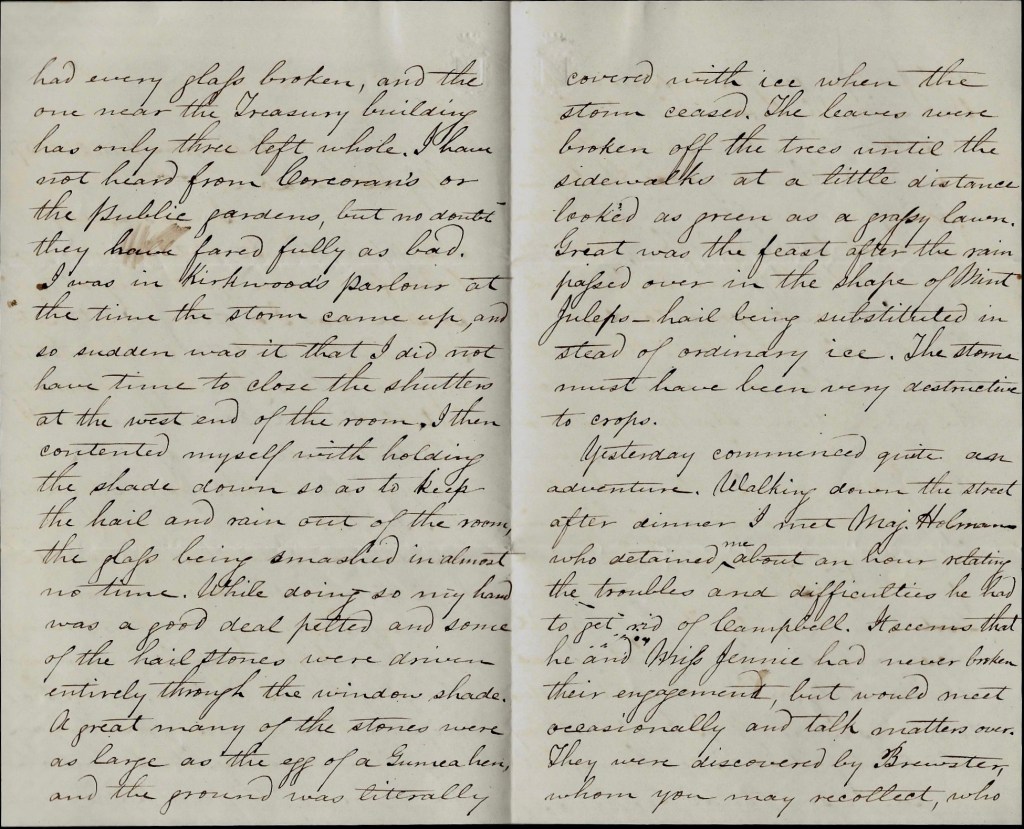 had every glass broken, and the
one near the Treasury building
has only three left whole. I have
not heard from Corcoran's or
the public gardens, but no doubt
they have fared fully as bad.
I was in Kirkwood's parlour at
the time the storm came up, and
so sudden was it that I did not
have time to close the shutters
at the west end of the room. I then
contented myself with holding
the shade down so as to keep
the hail and rain out of the room,
the glass being smashed in almost
no time. While doing so my hand
was a good deal pelted and some
of the hail stones were driven
entirely through the window shade.
A great many of the stones were
as large as the egg of a Guinea hen,
and the ground was literally
covered with ice when the
storm ceased. The leaves were
broken off the trees until the
sidewalks at a little distance
look'd as green as a grassy lawn.
Great was the feast after the rain
passed over in the shape of Mint
Juleps – hail being substituted in
stead of ordinary ice. The storm
must have been very destructive
to crops.
Yesterday commenced quite an
adventure. Walking down the street
after dinner I met Maj. Holman
who detained me about an hour relating
the troubles and difficulties he had
to get rid of Campbell. It seems that
he and Miss Jennie had never broken
their engagement, but would meet
occasionally and talk matters over.
They were discovered by Brewster,
whom you may recollect, who